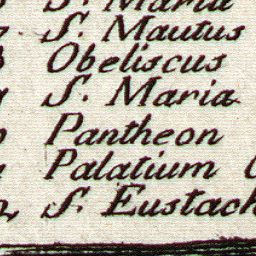 S. Maria
S. Mautus
Obeliscus
S. Maria
Pantheon
Palatium
S. Eustach